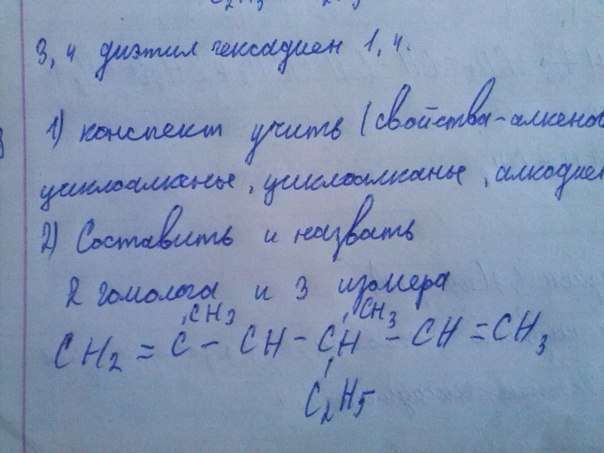 3, 4 диэтил гексадиен 1, 4.
1) конспект учить (свойства-алкенов
циклоалканы, циклоалканы, алкодиен
2) Составить и назвать
2 гомолога и 3 изомера
CH3 CH3
CH2 = C - CH - CH - CH = CH3
C2H5